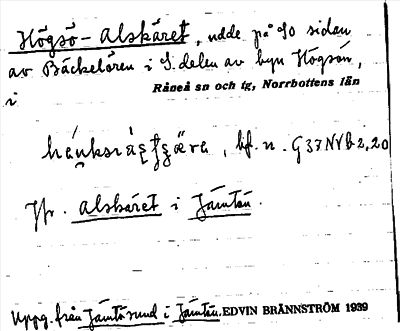 Högsö-Alskäret, udde på SO sidan
av Bäckelören i S. delen av byn Högsön,
i
Råneå sn och tg, Norrbottens län
bf. n. G 37 NV b 2,20
Jfr. Alskäret i Jämtön.
Uppg. från Jämtösund i Jämtön. EDVIN BRÄNNSTRÖM 1939